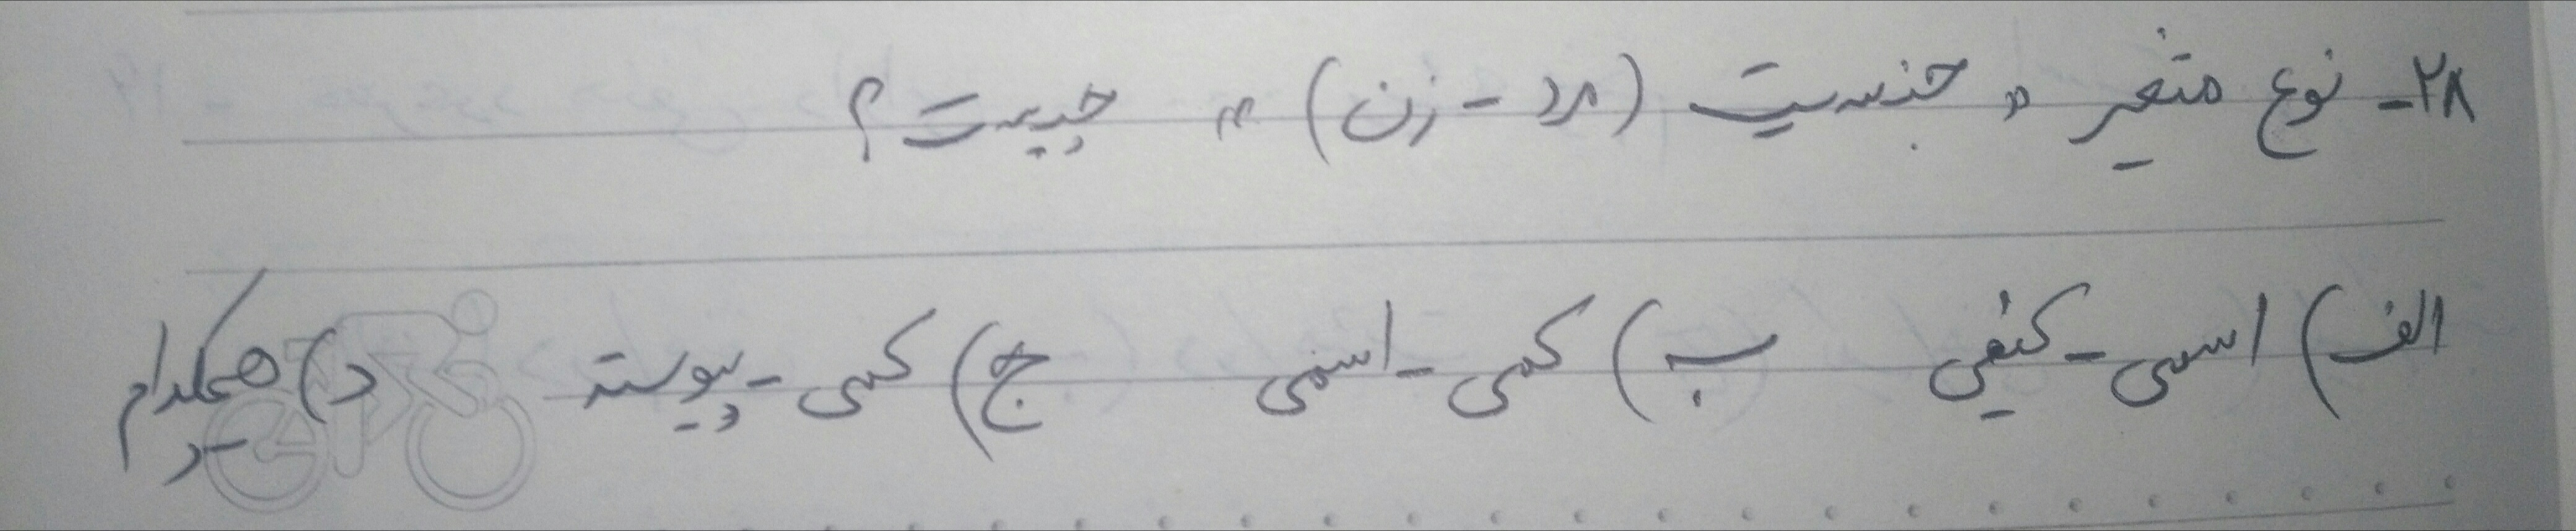 ۲۸- نوع متغیر « جنسیت (مرد - زن) » چیست ؟
الف) اسمی - کیفی ب) کمی - اسمی ج) کمی - پیوسته د) هیچکدام